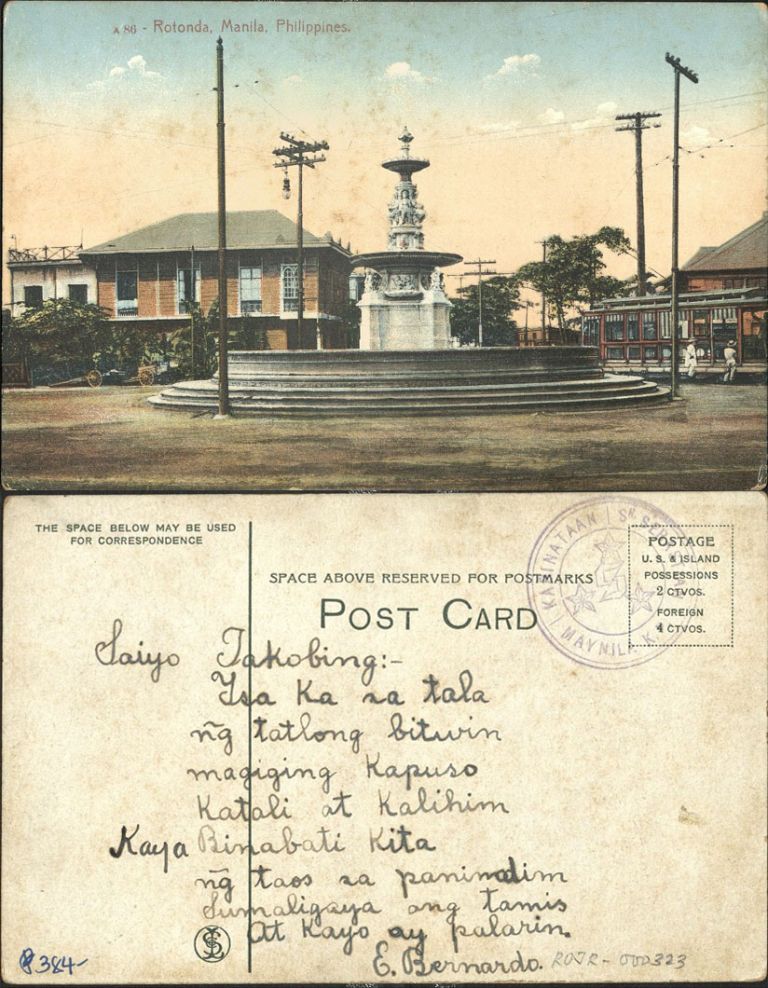 A 86 - Rotonda, Manila, Philippines.
THE SPACE BELOW MAY BE USED
FOR CORRESPONDENCE
SPACE ABOVE RESERVED FOR POSTMARKS
POST CARD
POSTAGE
U. S. & ISLAND
POSSESSIONS
2 CTVOS.
FOREIGN
4 CTVOS.
KAMINATAAN
MAYNILA K.
Saiyo Jakobing:-
Isa Ka sa tala
n͠g tatlong bituin
magiging Kapuso
Katali at Kalihim
Kaya Binabati Kita
n͠g taos sa panimdim
Sumaligaya ang tamis
At Kayo ay palarin.
E. Bernardo.
384-
ROTR-000323